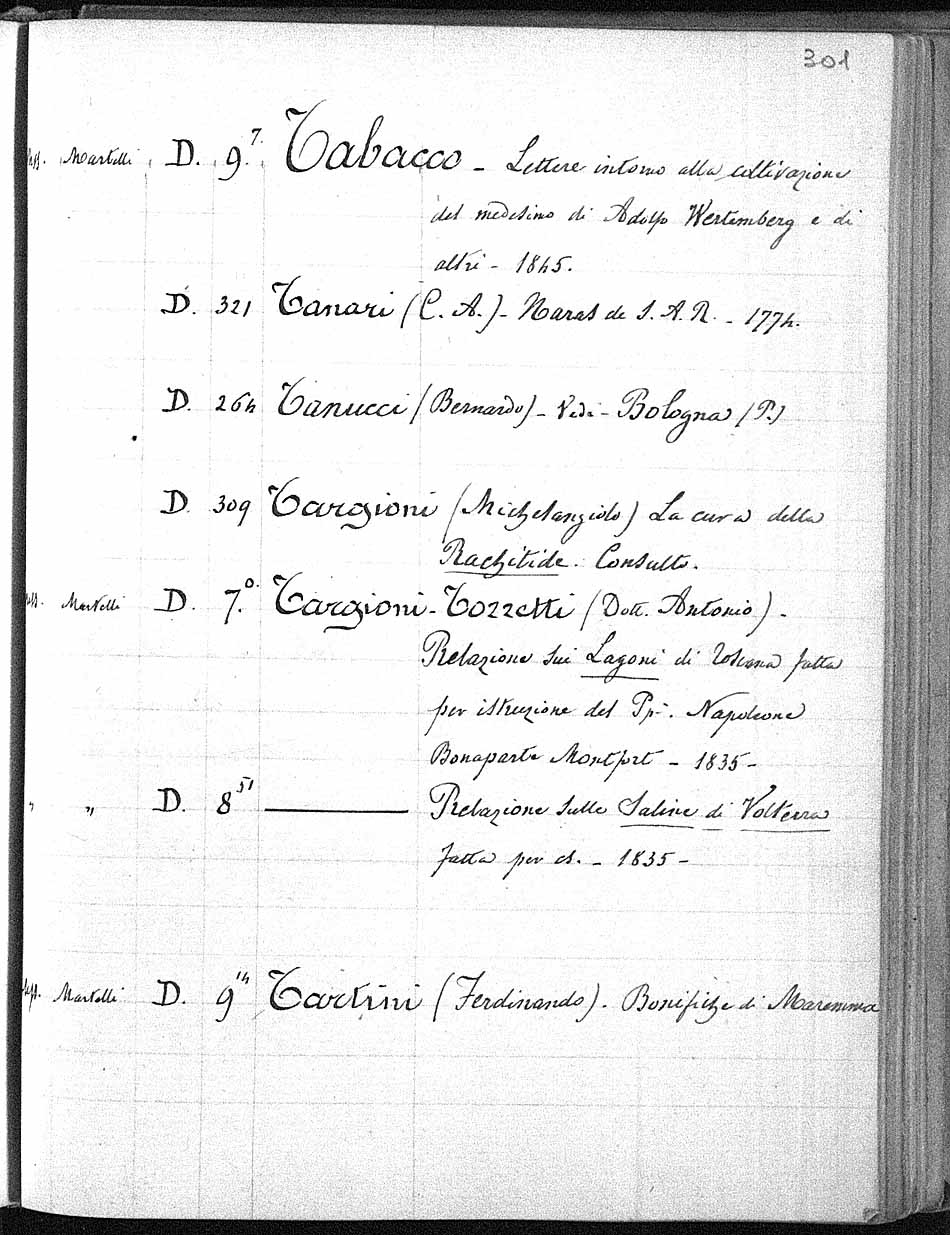 301
Martelli D. 9.7. Tabacco - Lettere intorno alla coltivazione
del medesimo di Adolfo Wertemberg e di
altri - 1845.
D. 321 Tanari (C. A.) - Haras de S. A. R. - 1774.
D. 264 Tanucci (Bernardo) - Vedi - Bologna (P.)
D. 309 Targioni (Michelangiolo) La cura della
Rachitide. Consulto.
Martelli D. 7.0. Targioni-Tozzetti (Dott. Antonio) -
Relazione sui Lagoni di Toscana fatta
per istruzione del Pr. Napoleone
Bonaparte Montfort - 1835 -
" " D. 8 51 Relazione sulle Saline di Volterra
fatta per - 1835 -
Martelli D. 9 14 Tartini (Ferdinando). Bonifiche di Maremma